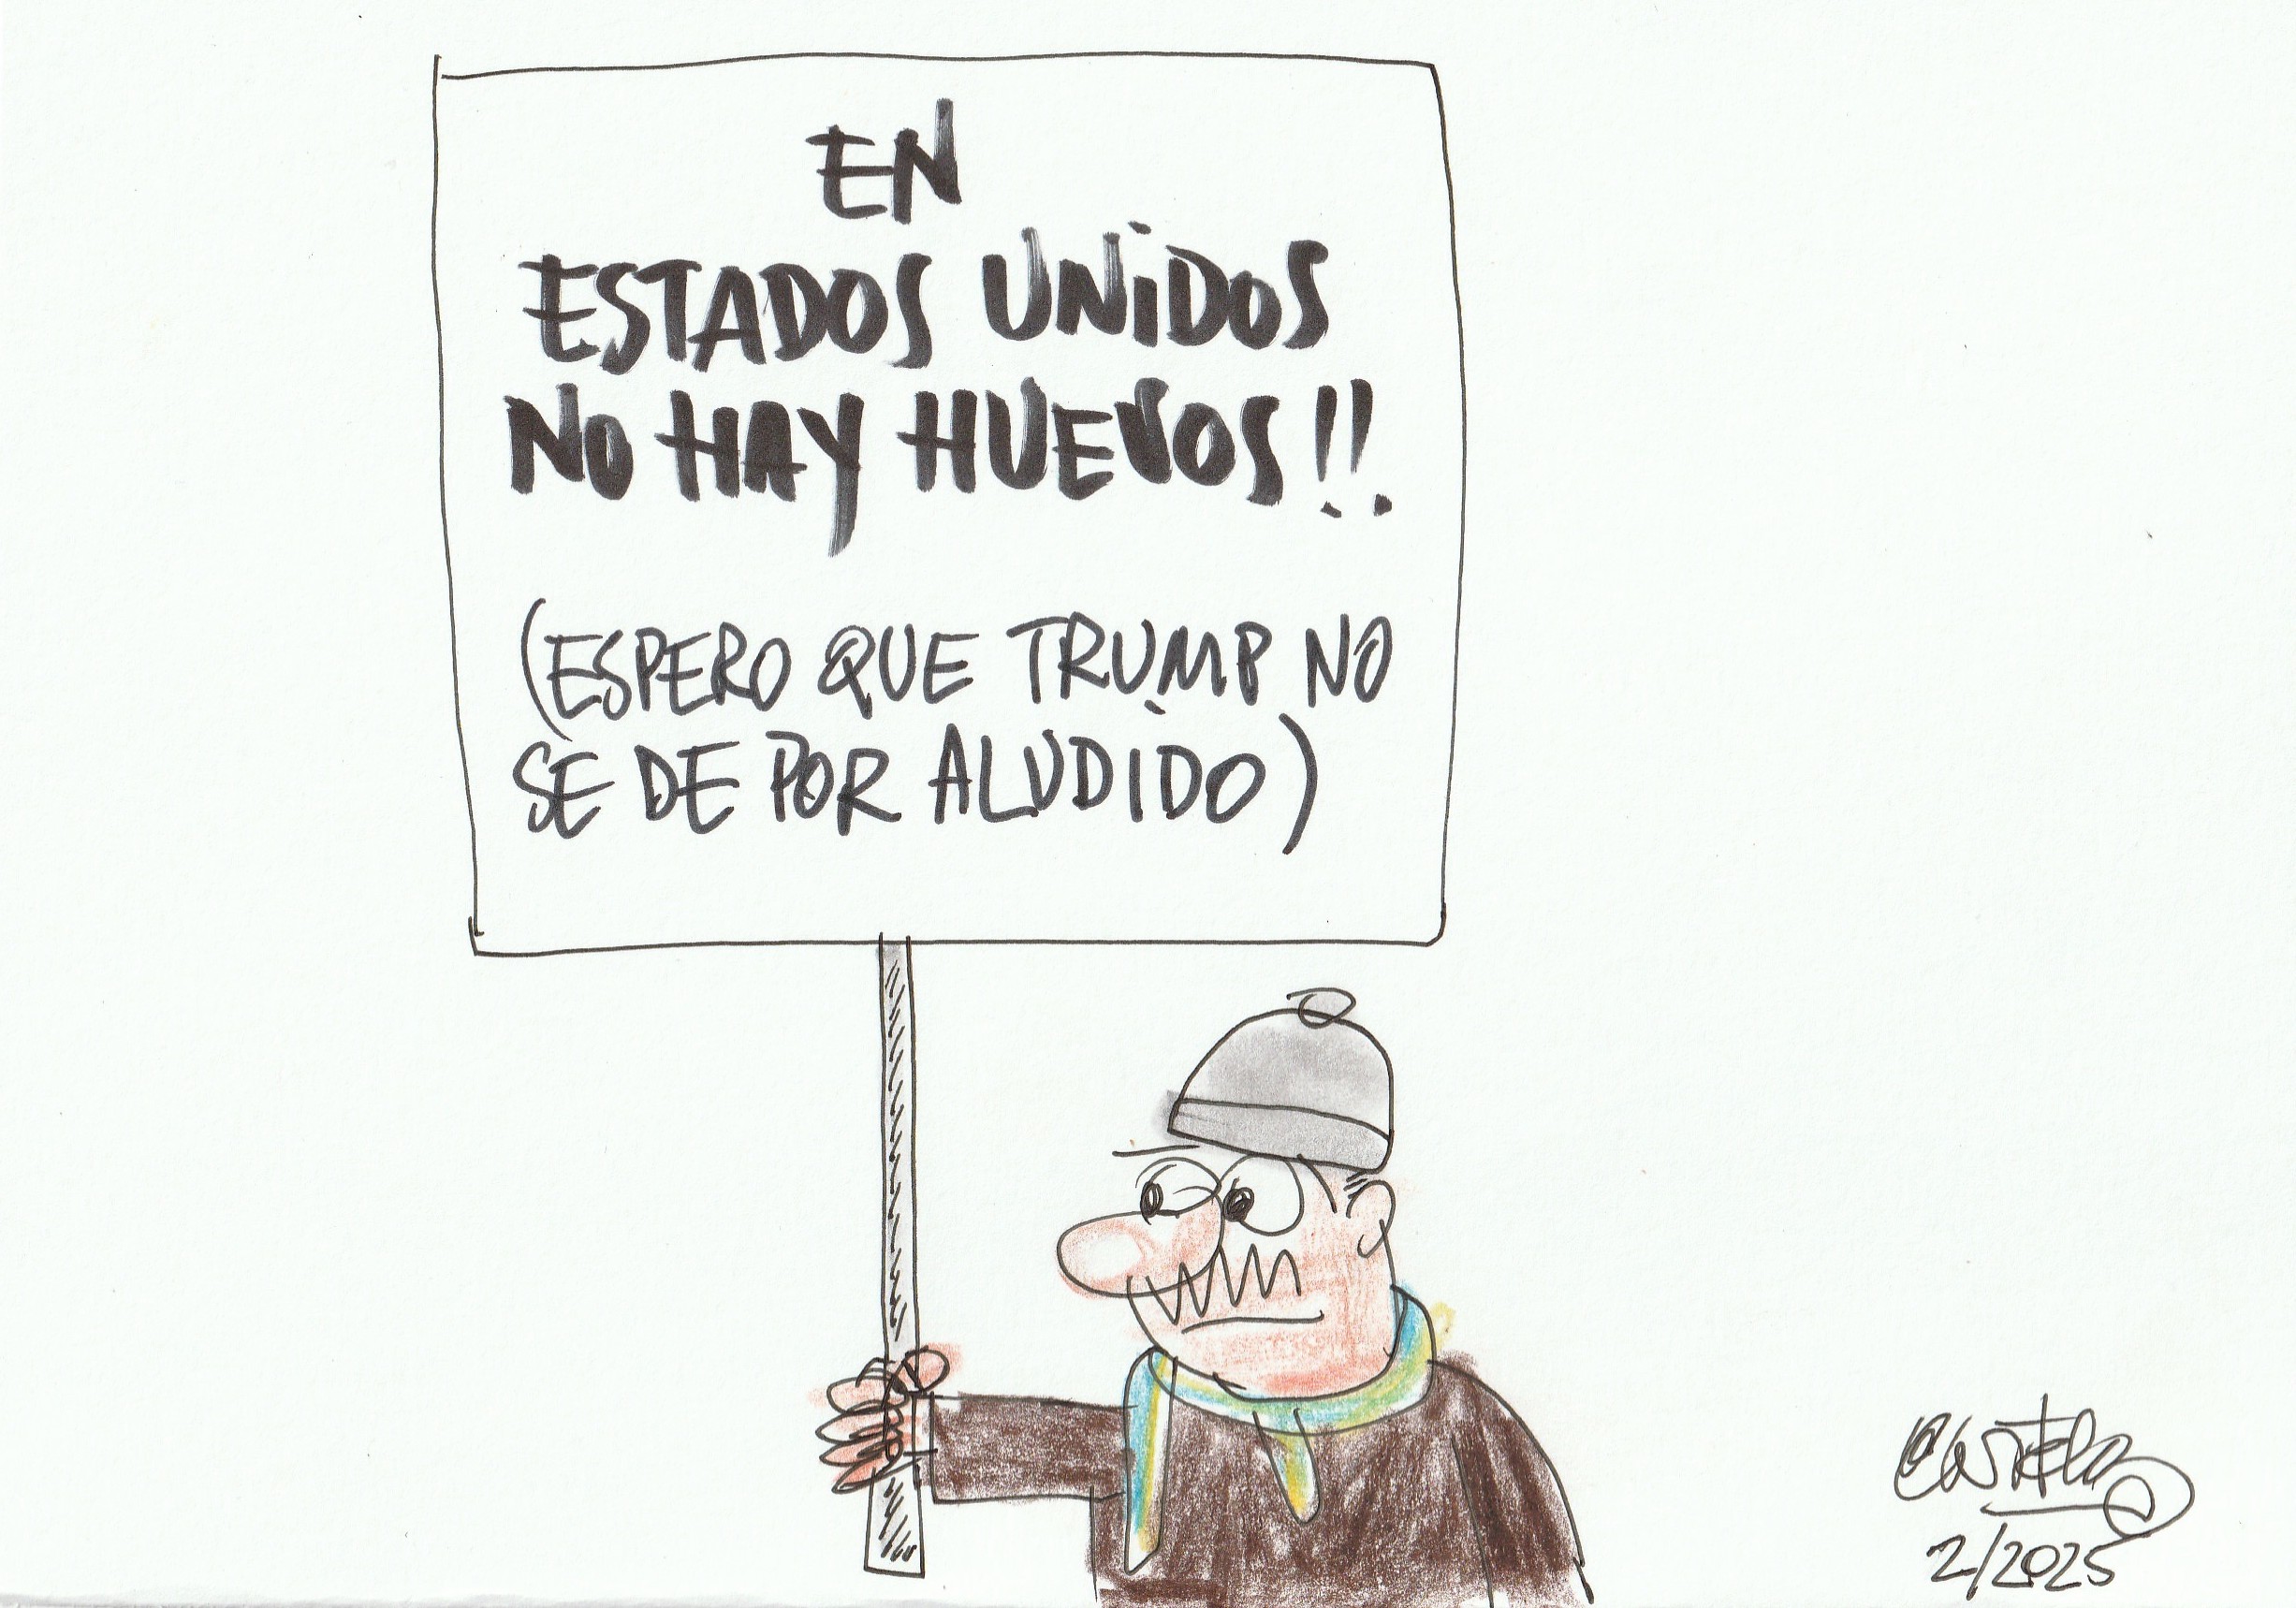 EN
ESTADOS UNiDOS
NO HAY HUEVOS!!
(ESPERO QUE TRUMP NO
SE DE POR ALUDiDO)
2/2025